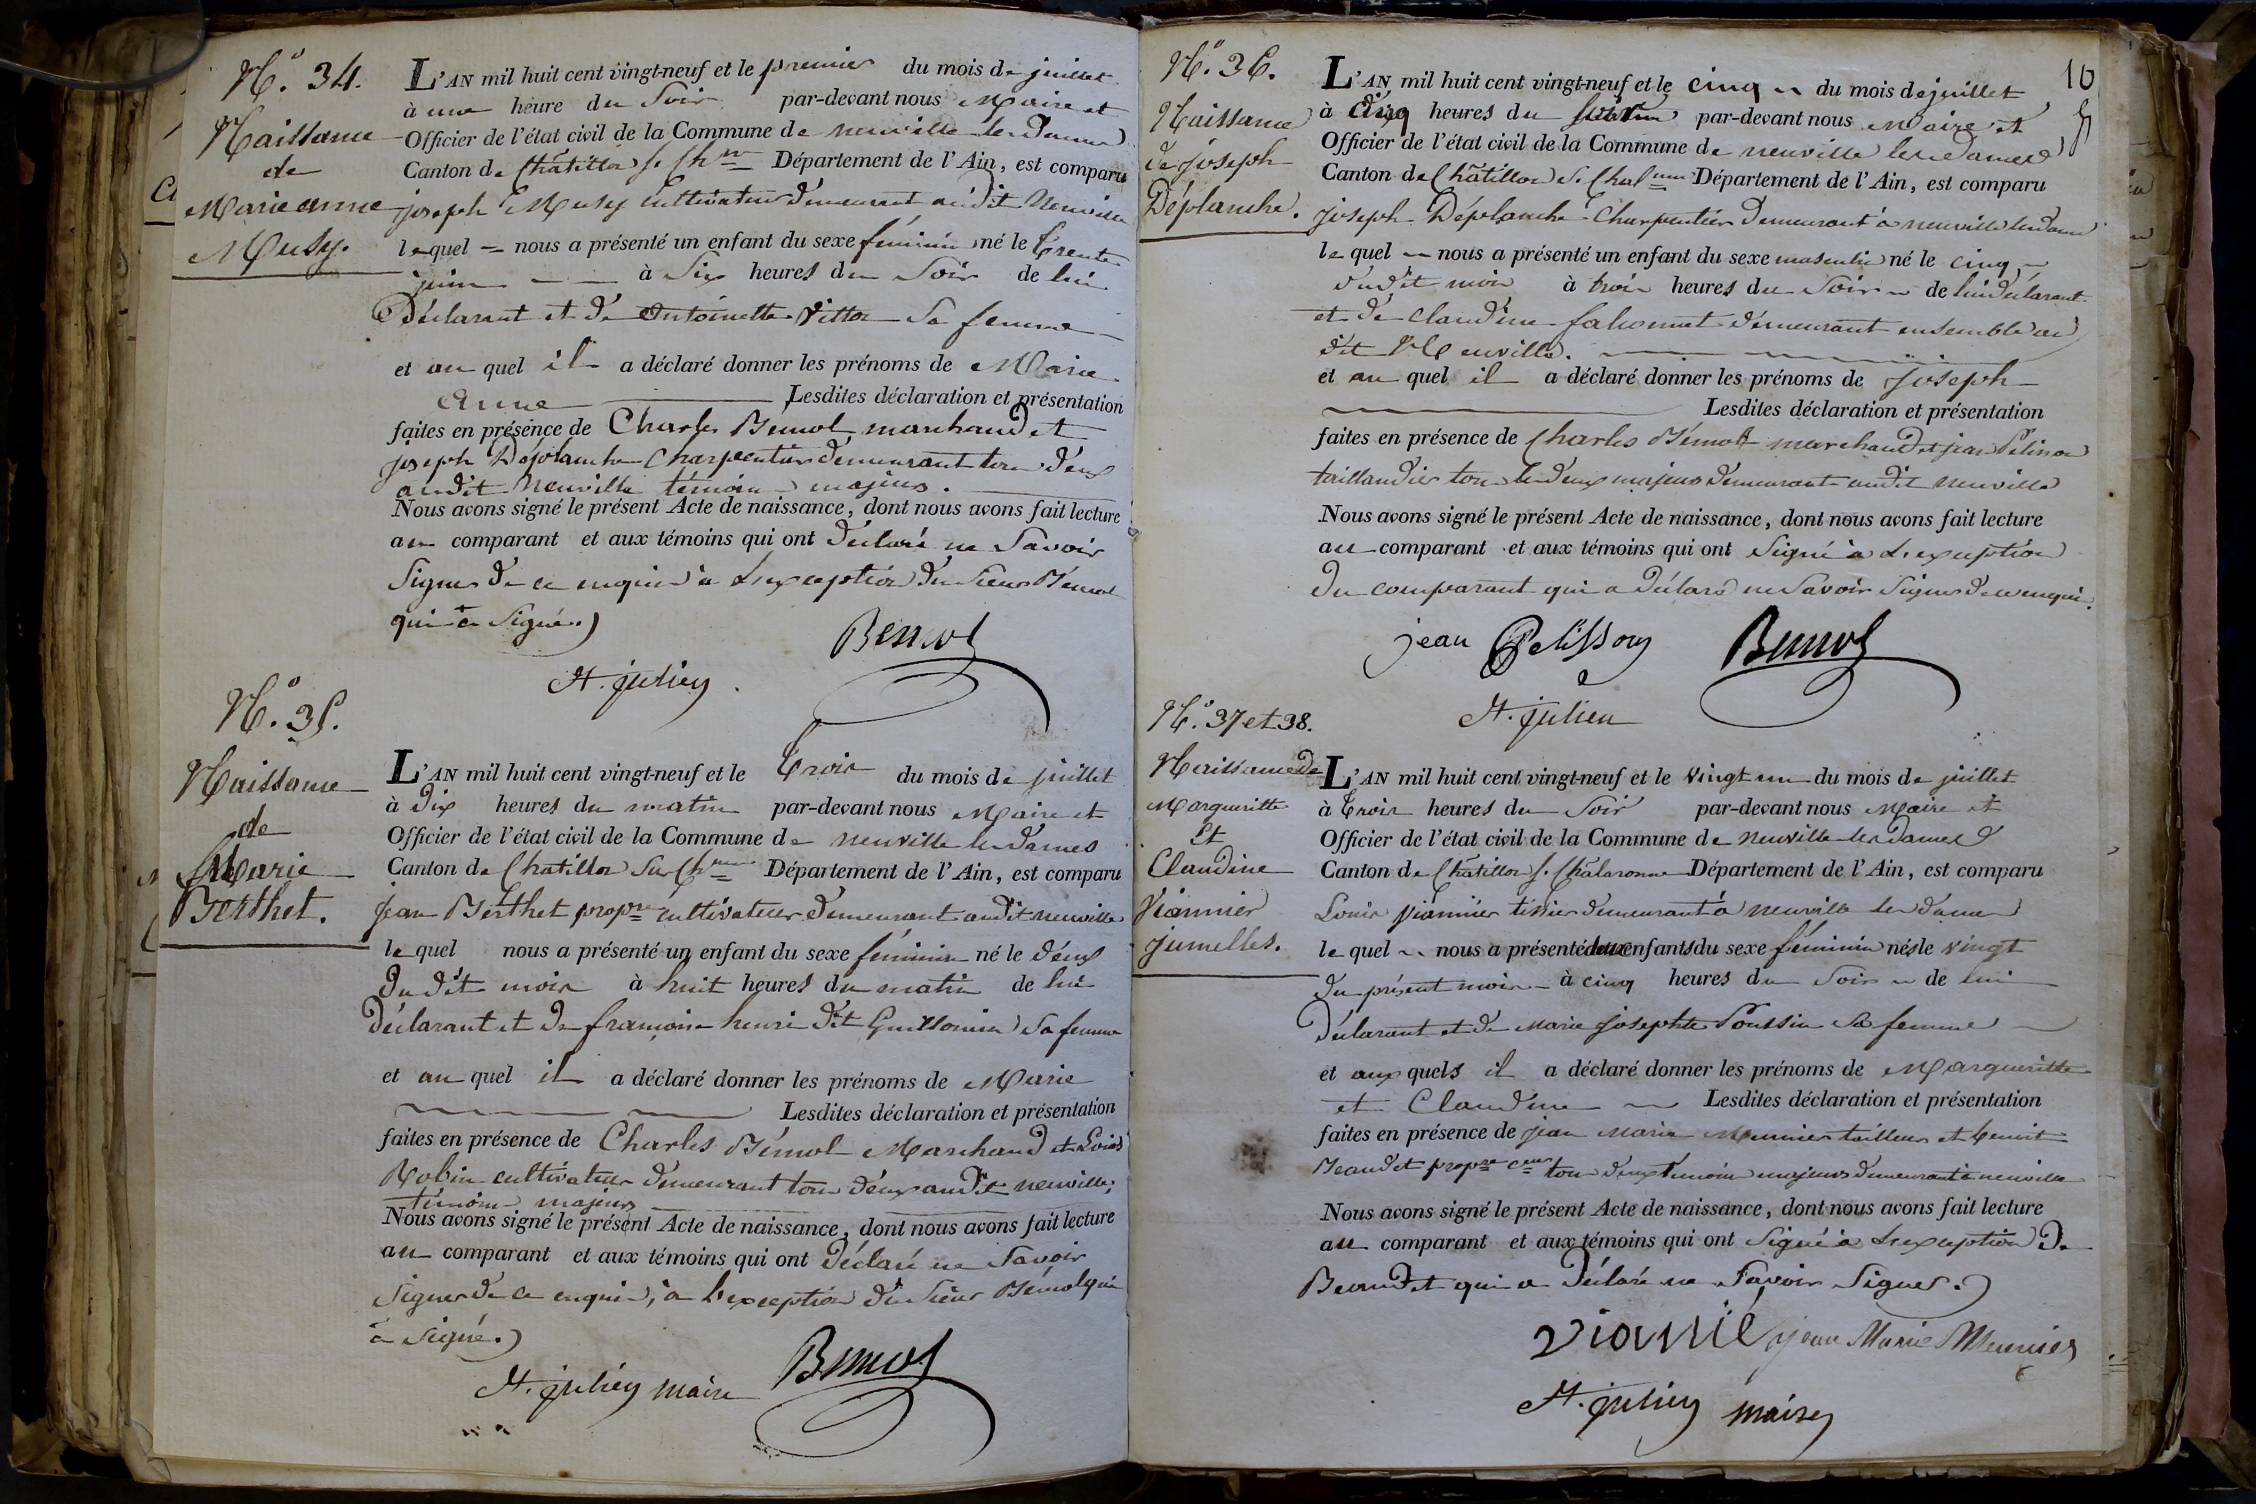 N.° 34.
Naissance
de
Marie anne
Musy.
L'AN mil huit cent vingt-neuf et le premier du mois de juillet
à une heure du Soir par-devant nous Maire et
Officier de l'état civil de la Commune de neuville les Dames
Canton de Châtillon s. Ch.ne Département de l'Ain, est comparu
joseph Musy Cultivateur demeurant audit Neuville
lequel nous a présenté un enfant du sexe féminin né le trente
juin à Six heures du Soir de lui
Déclarant et de Antoinette Vitton Sa femme
et au quel il a déclaré donner les prénoms de Marie
Anne Lesdites déclaration et présentation
faites en présence de Charles Bémol marchand et
joseph Déplanche Charpentier demeurant tous deux
audit Neuville témoins majeurs.
Nous avons signé le présent Acte de naissance, dont nous avons fait lecture
au comparant et aux témoins qui ont déclaré ne Savoir
Signer de ce enquis à L'exception du Sieur Bémol
qui a Signé.
Bemol
St. julien
N.° 35.
Naissance
de
Marie
Berthet.
L'AN mil huit cent vingt-neuf et le trois du mois de juillet
à dix heures du matin par-devant nous Maire et
Officier de l'état civil de la Commune de neuville les Dames
Canton de Châtillon sur Ch.ne Département de l'Ain, est comparu
jean Berthet prop.re cultivateur demeurant audit neuville
le quel nous a présenté un enfant du sexe féminin né le deux
Du dit mois à huit heures du matin de lui
Déclarant et De françoise henri dit Guillomin Sa femme
et au quel il a déclaré donner les prénoms de Marie
Lesdites déclaration et présentation
faites en présence de Charles Bémol Marchand et Louis
Robin cultivateur demeurant tous deux audit neuville,
témoins majeurs
Nous avons signé le présent Acte de naissance, dont nous avons fait lecture
au comparant et aux témoins qui ont Déclaré ne Savoir
Signer de ce enquis, à l'exception du Sieur Bémol qui
a Signé.
Bemol
St. julien maire
10
N.° 36.
Naissance
de joseph
Déplanche.
L'AN mil huit cent vingt-neuf et le cinq du mois de juillet
à cinq heures du par-devant nous Maire et
Officier de l'état civil de la Commune de neuville les Dames
Canton de Châtillon s. Chal.nne Département de l'Ain, est comparu
joseph Déplanche Charpentier Demeurant à neuville les dames
le quel nous a présenté un enfant du sexe masculin né le cinq
dudit mois à trois heures du Soir de lui déclarant
et de claudine demeurant ensemble au
dit Neuville.
et au quel il a déclaré donner les prénoms de joseph
Lesdites déclaration et présentation
faites en présence de Charles Bémol marchand et jean Pelisson
taillandier tous les deux majeurs demeurant audit neuville
Nous avons signé le présent Acte de naissance, dont nous avons fait lecture
au comparant et aux témoins qui ont Signé à L'exception
Du comparant qui a déclaré ne Savoir Signer de ce enquis.
jean Pelisson Bemol
St. julien
N.° 37 et 38.
Naissance De
Margueritte
Et
Claudine
Viannier
jumelles.
L'AN mil huit cent vingt-neuf et le vingt un du mois de juillet
à trois heures du Soir par-devant nous Maire et
Officier de l'état civil de la Commune de Neuville les Dames
Canton de Châtillon s. Châlaronne Département de l'Ain, est comparu
Louis Viannier tissier demeurant à neuville les dames
le quel nous a présenté deux enfants du sexe féminin nés le vingt
du présent mois à cinq heures du Soir de lui
Déclarant et de Marie josephte Poussin Sa femme
et aux quels il a déclaré donner les prénoms de Margueritte
et Claudine Lesdites déclaration et présentation
faites en présence de jean Marie Meunier tailleur et benoit
Beaudet prop.re c.eur tous deux témoins majeurs demeurant à neuville
Nous avons signé le présent Acte de naissance, dont nous avons fait lecture
au comparant et aux témoins qui ont Signé à L'exception De
Beaudet qui a Déclaré ne Savoir Signer.
vianié jean Marie Meunier
St. julien maire